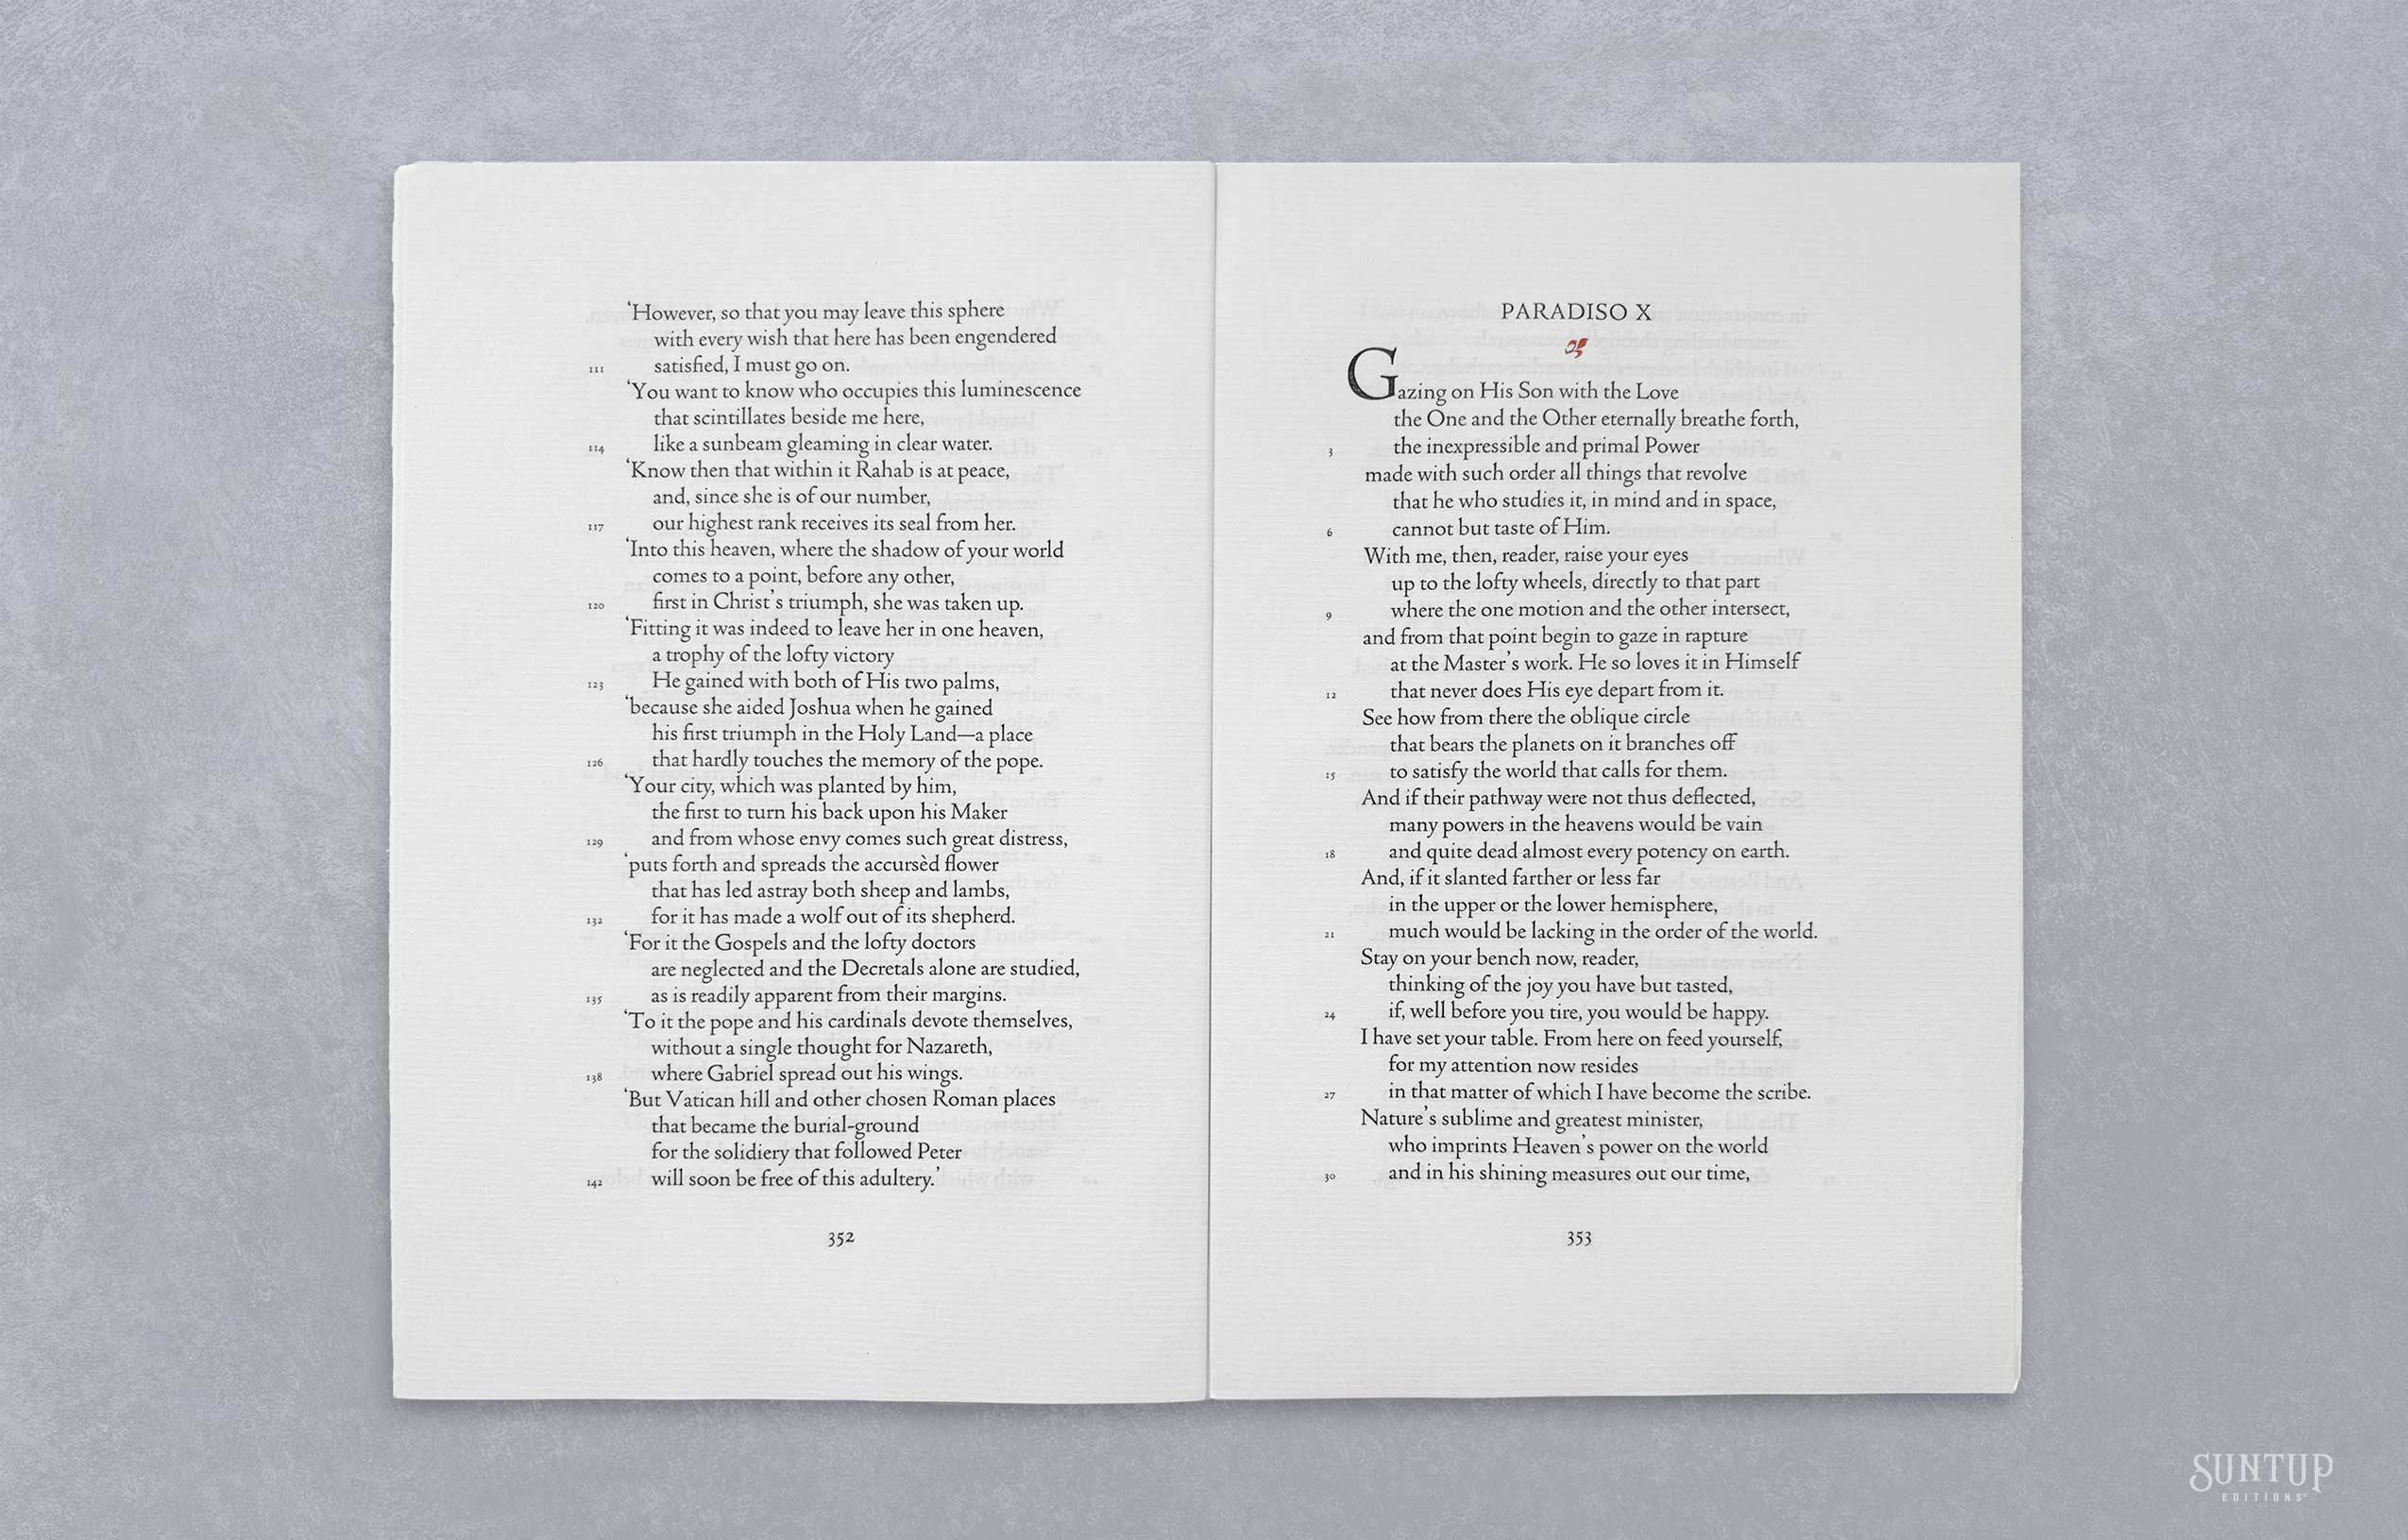 ‘However, so that you may leave this sphere
with every wish that here has been engendered
111 satisfied, I must go on.
‘You want to know who occupies this luminescence
that scintillates beside me here,
114 like a sunbeam gleaming in clear water.
‘Know then that within it Rahab is at peace,
and, since she is of our number,
117 our highest rank receives its seal from her.
‘Into this heaven, where the shadow of your world
comes to a point, before any other,
120 first in Christ’s triumph, she was taken up.
‘Fitting it was indeed to leave her in one heaven,
a trophy of the lofty victory
123 He gained with both of His two palms,
‘because she aided Joshua when he gained
his first triumph in the Holy Land—a place
126 that hardly touches the memory of the pope.
‘Your city, which was planted by him,
the first to turn his back upon his Maker
129 and from whose envy comes such great distress,
‘puts forth and spreads the accursèd flower
that has led astray both sheep and lambs,
132 for it has made a wolf out of its shepherd.
‘For it the Gospels and the lofty doctors
are neglected and the Decretals alone are studied,
135 as is readily apparent from their margins.
‘To it the pope and his cardinals devote themselves,
without a single thought for Nazareth,
138 where Gabriel spread out his wings.
‘But Vatican hill and other chosen Roman places
that became the burial-ground
for the solidiery that followed Peter
142 will soon be free of this adultery.’
352
PARADISO X
Gazing on His Son with the Love
the One and the Other eternally breathe forth,
3 the inexpressible and primal Power
made with such order all things that revolve
that he who studies it, in mind and in space,
6 cannot but taste of Him.
With me, then, reader, raise your eyes
up to the lofty wheels, directly to that part
9 where the one motion and the other intersect,
and from that point begin to gaze in rapture
at the Master’s work. He so loves it in Himself
12 that never does His eye depart from it.
See how from there the oblique circle
that bears the planets on it branches off
15 to satisfy the world that calls for them.
And if their pathway were not thus deflected,
many powers in the heavens would be vain
18 and quite dead almost every potency on earth.
And, if it slanted farther or less far
in the upper or the lower hemisphere,
21 much would be lacking in the order of the world.
Stay on your bench now, reader,
thinking of the joy you have but tasted,
24 if, well before you tire, you would be happy.
I have set your table. From here on feed yourself,
for my attention now resides
27 in that matter of which I have become the scribe.
Nature’s sublime and greatest minister,
who imprints Heaven’s power on the world
30 and in his shining measures out our time,
353
SUNTUP
EDITIONS